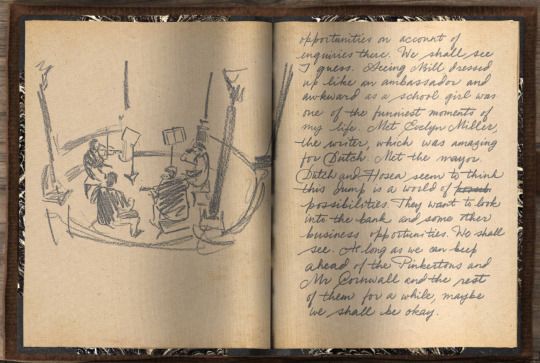 opportunities on account of
enquiries there. We shall see
I guess. Seeing Bill dressed
up like an ambassador and
awkward as a school girl was
one of the funniest moments of
my life. Met Evelyn Miller,
the writer, which was amazing
for Dutch. Met the mayor.
Dutch and Hosea seem to think
this dump is a world of possib
possibilities. They want to look
into the bank and some other
business opportunities. We shall
see. As long as we can keep
ahead of the Pinkertons and
Mr Cornwall and the rest
of them for a while, maybe
we shall be okay.